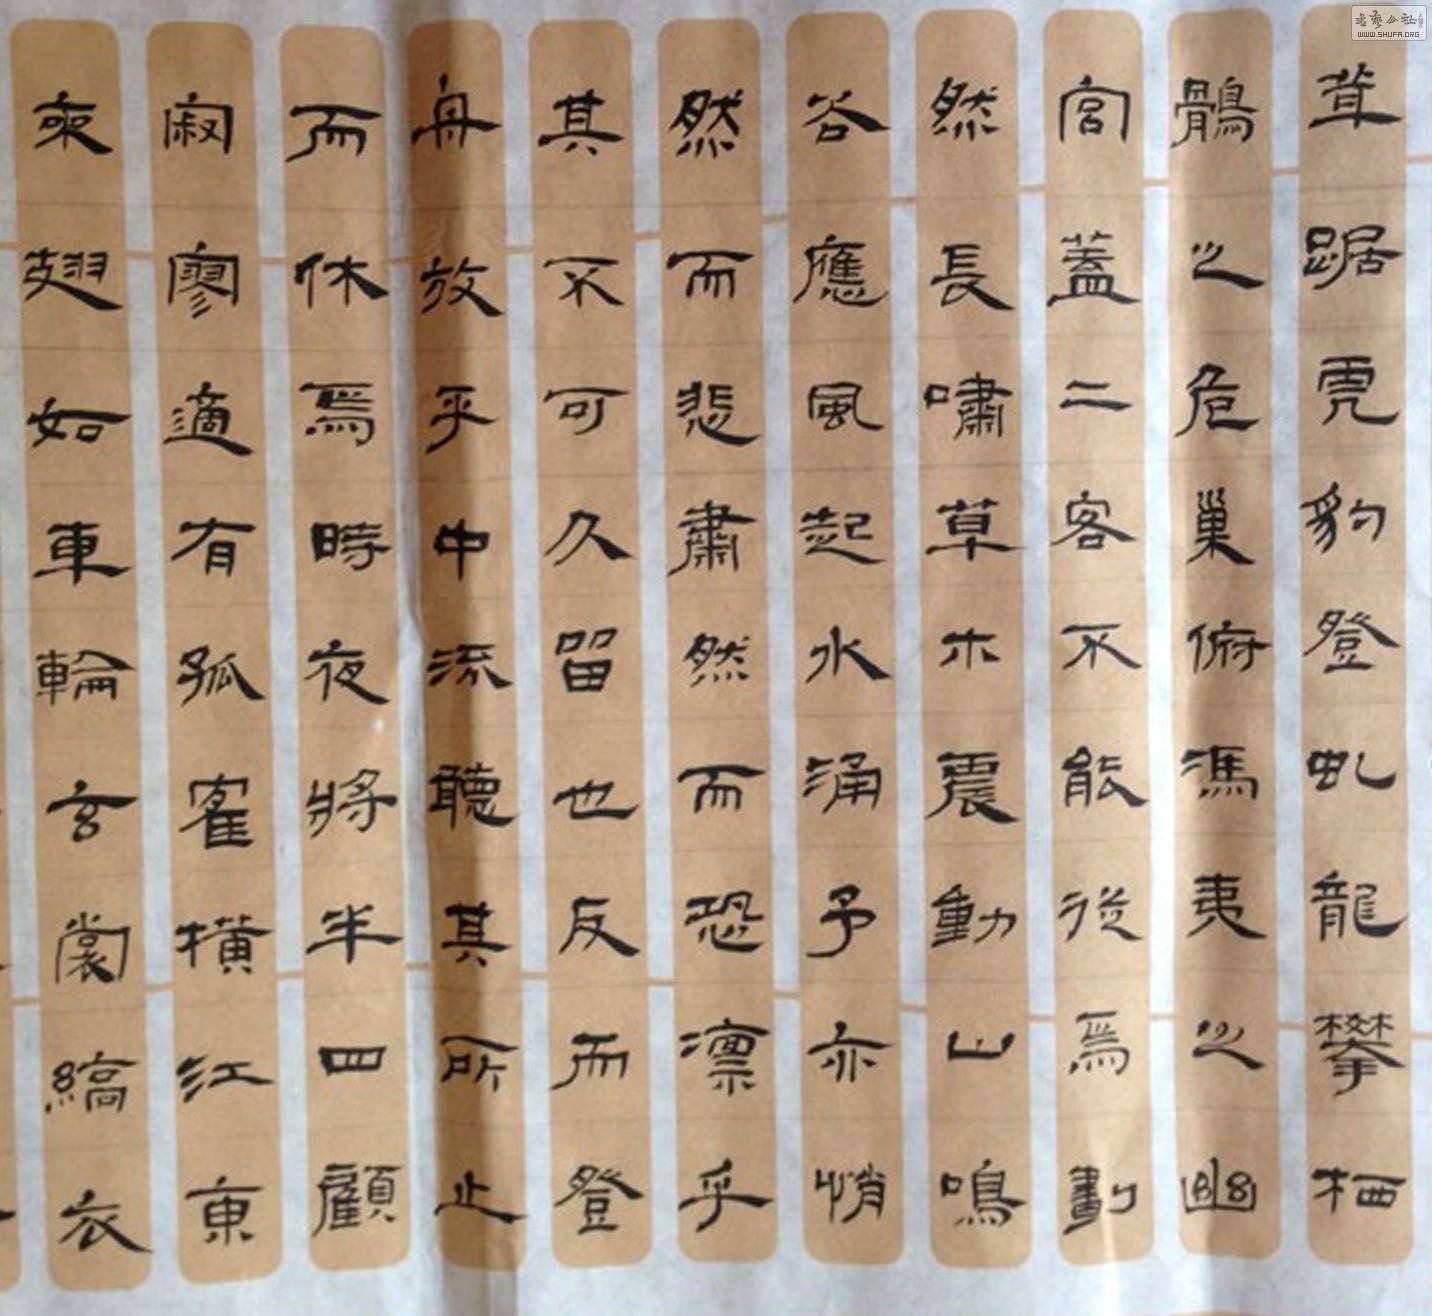 茸踞虎豹登虬龍攀栖
鶻之危巢俯馮夷之幽
宮蓋二客不能從焉劃
然長嘯草木震動山鳴
谷應風起水涌予亦悄
然而悲肅然而恐凛乎
其不可久留也反而登
舟放乎中流聽其所止
而休焉時夜將半四顧
寂寥適有孤隺橫江東
來翅如車輪玄裳縞衣
WWW.SHUFA.ORG